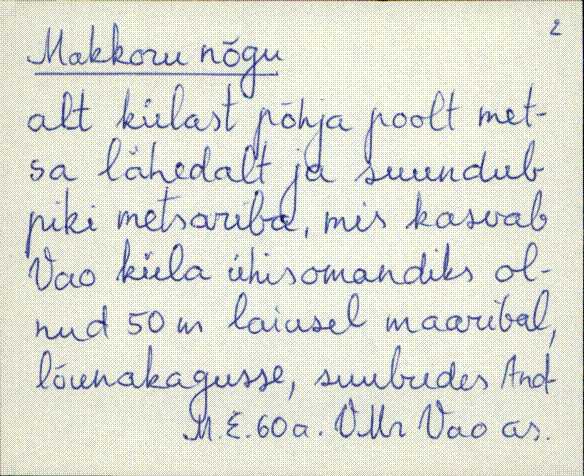 2
Makkoru nõgu
alt külast põhja poolt met-
sa lähedalt ja suundub
piki metsariba, mis kasvab
Vao küla ühisomandiks ol-
nud 50 m laiusel maaribal,
lõunakagusse, suubudes And-
M.E. 60 a. VMr Vao as.